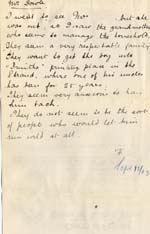 Mrs
I went to see Mrs but she
was out, so I saw the grandmother
who seems to manage the household.
They seem a very respectable family
They want to get the boy into
Smiths' printing place in the
Strand, where one of his uncles
has been for 25 years.
They seem very anxious to have
him back.
They do not seem to be the sort
of people who would let him
run wild at all
Sept